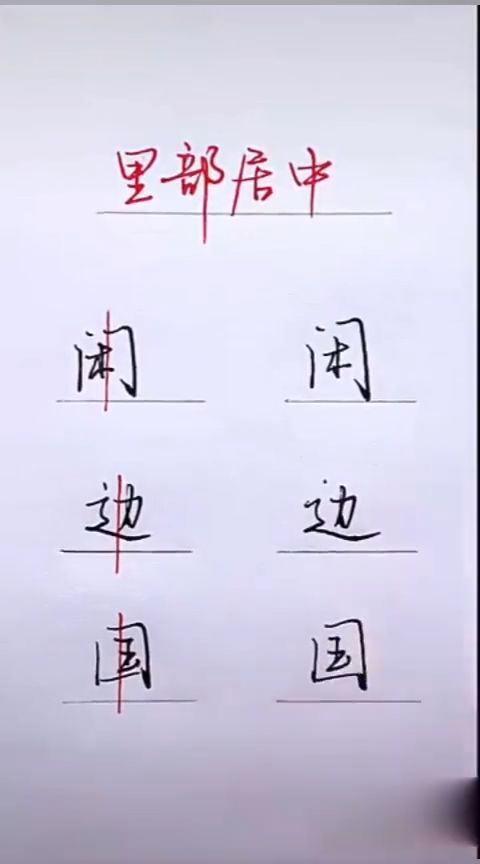 里部居中
闲 闲
边 边
国 国